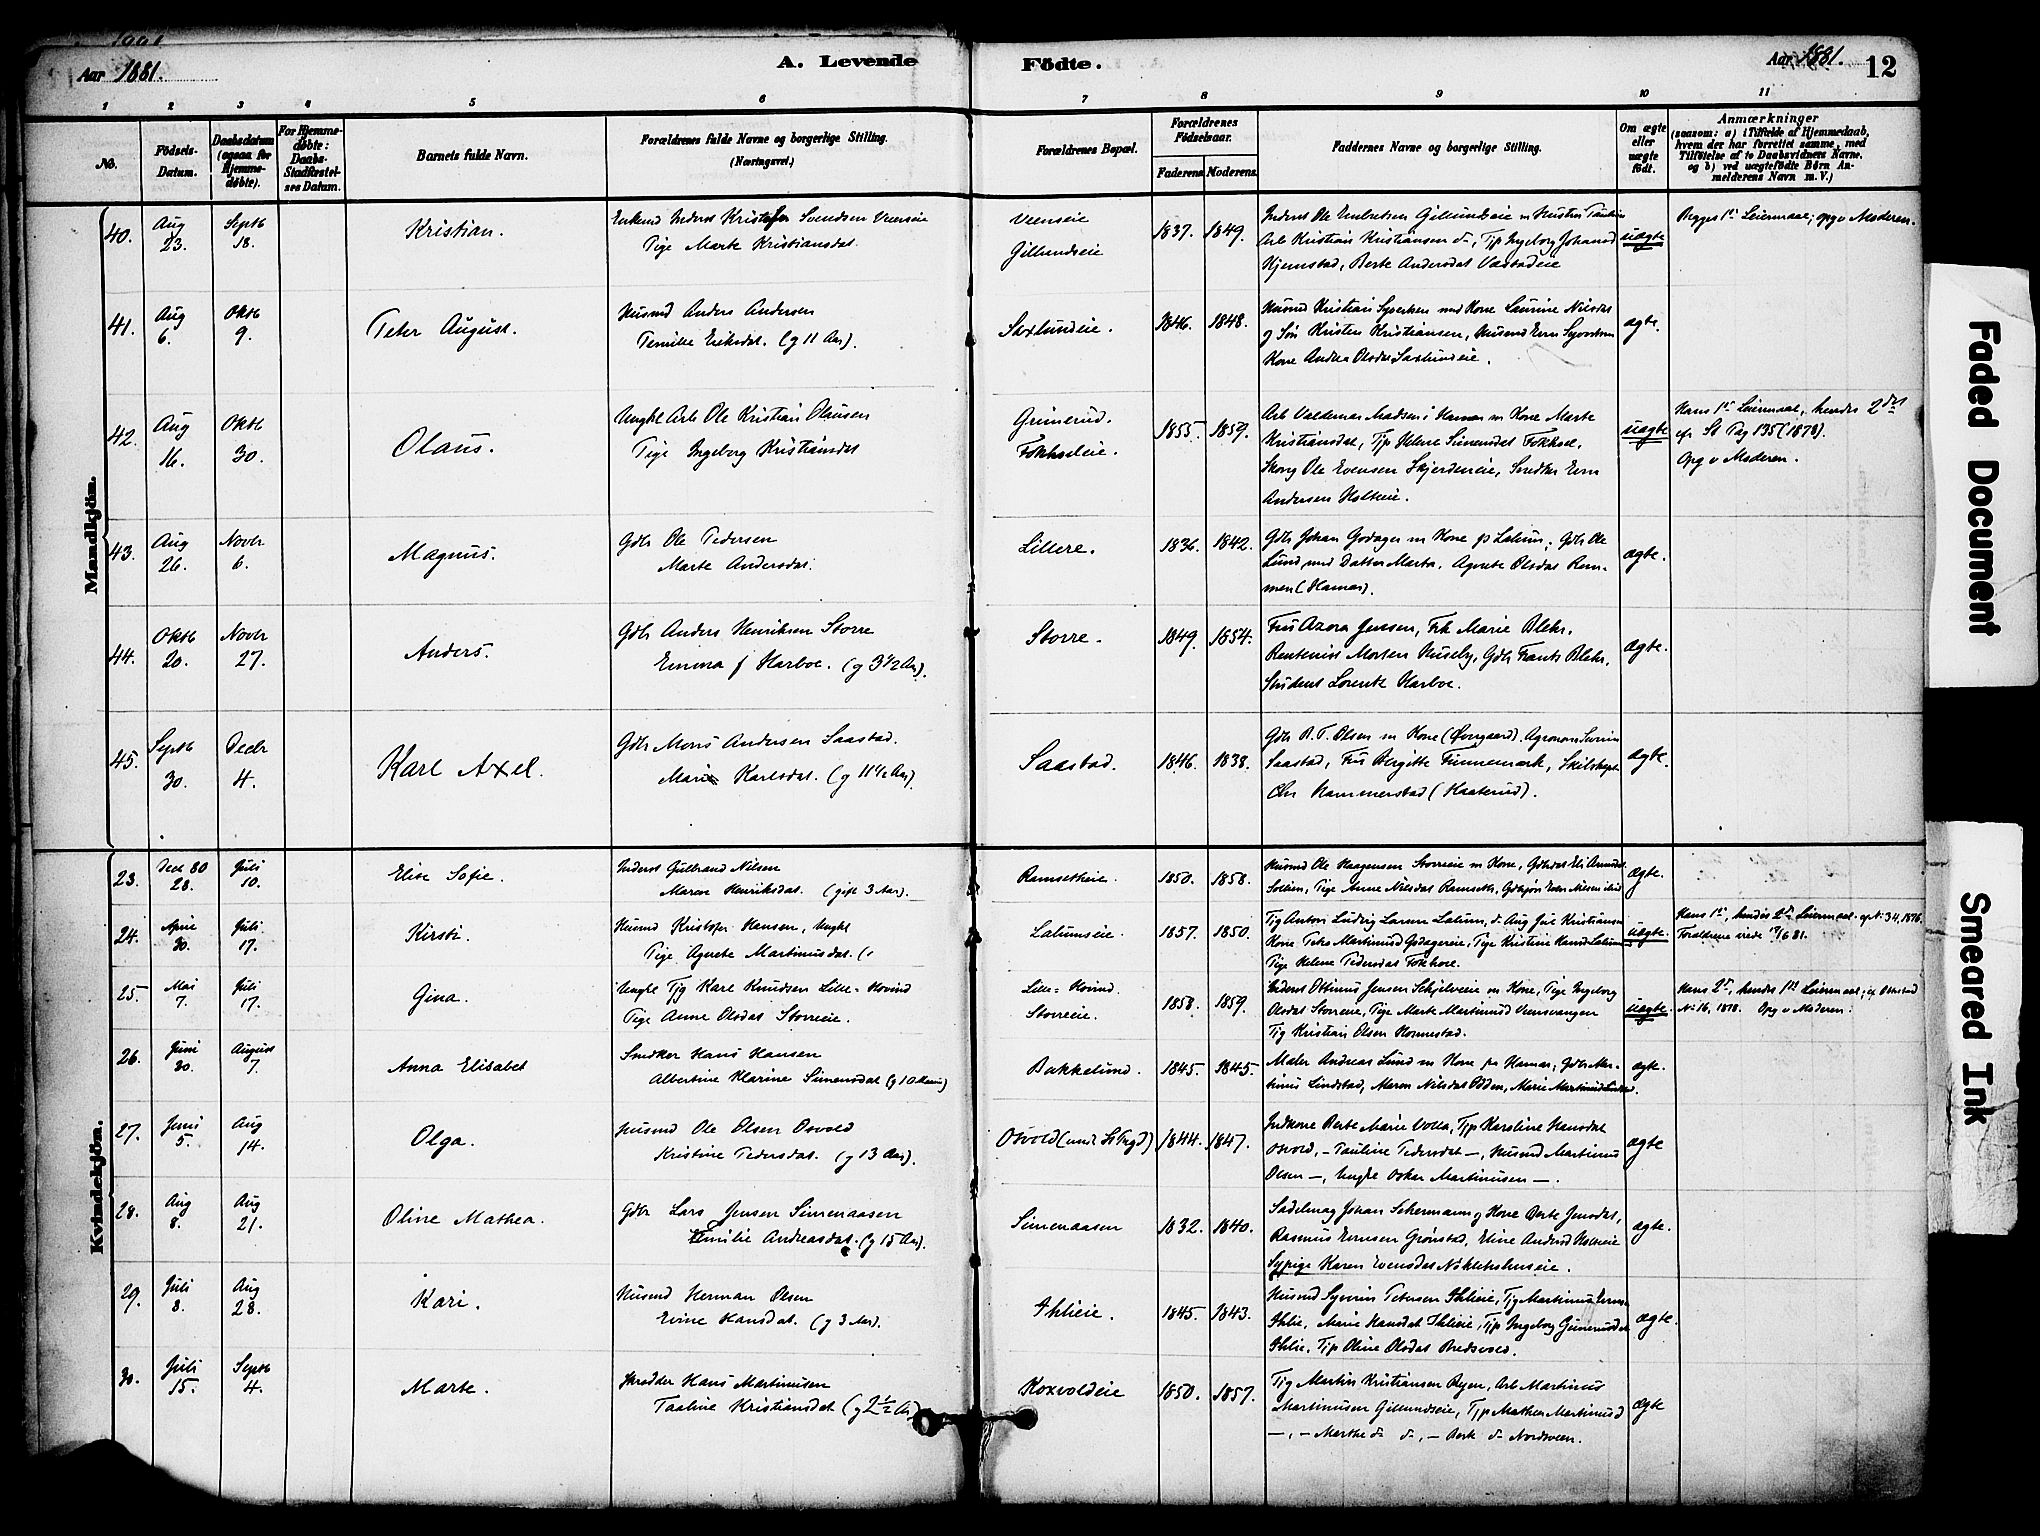 Aar 1881.
A. Levende
Födte.
Aar 1881. 12
1 2 3 4 5 6 7 8 9 10 11
No.
Födsels-Datum.
Daabsdatum (ogsaa for Hjemmedøbte).
For Hjemmedøbte: Daabs-Stadfæstelses Datum.
Barnets fulde Navn.
Forældrenes fulde Navne og borgerlige Stilling.
(Næringsvei.)
Forældrenes Bopæl.
Forældrenes Fødselsaar.
Faderens Moderens
Faddernes Navne og borgerlige Stilling.
Om ægte eller uægte født.
Anmærkninger
(saasom: a) i Tilfælde af Hjemmedaab,
hvem der har forrettet samme, med
Tilføielse af to Daabsvidners Navne.
og b) ved uægtefødte Børn An-
melderens Navn m. V.)
Mandkjön.
40. Aug 23. Septb 18. Kristian.
Svendsen Veenseie
Tige Marte Kristiansdat.
Veenseie
Gillundseie
1837. 1849.
Kjemstad, Berte Andersdat
uægte
Begges 1ste Leiermaal; opg v Moderen.
41. Aug 6. Oktb 9. Peter August.
Husmd Anders Andersen
Pernille Eriksdat. (g 11 Aar).
Saxlundeie.
1846. 1848.
Husmd Kristian Syversen med Kone Laurine Nilsdat
og Søn Kristen Kristiansen, Husmd Even
Kone Andrea Olsdat Saxlundeie.
ægte.
42. Aug 16. Oktb 30. Olaus.
Ungkl Arb Ole Kristian Olausen
Pige Ingeborg Kristiansdat
Grimerud.
Fokholeie.
1855. 1859.
Arb Valdemar Madsen i Hamar m Kone Marte
Kristiansdat, Tjp Helene Simensdat Fokhol,
Skorg Ole Evensen Skjerdeneie, Snedker Even
Andersen Holteie.
uægte
Hans 1ste Leiermaal, hendes 2det
cfr St Pag 135 (1878).
Opg v Moderen.
43. Aug 26. Novbr 6. Magnus.
Gdbr Ole Pedersen
Marte Andersdat.
Lillere.
1836. 1842.
Gdbr Johan Godager m Kone fr Lalum; Gdbr Ole
Lund med Datter Marta, Agnete Olsdat Rom-
men (Hamar).
ægte.
44. Oktb 20. Novbr 27. Anders.
Gdbr Anders Henriksen Storre
Emma f Harboe. (g 3½ Aar).
Storre.
1849. 1854.
Fru Azora Jenssen, Frk Marie Blehr,
Rentenist Morten Huseby, Gdbr Frants Blehr,
Student Lorentz Harboe.
ægte.
45. Septb 30. Decbr 4. Karl Axel.
Gdbr Mons Andersen Saastad.
Marie Karlsdat. (g 11½ Aar).
Saastad.
1846. 1838.
Gdbr R. T. Olsen m Kone (Ovrgaard). Agronom Severin
Saastad, Fru Birgitte Finnemark, Skibskapt
Chr Hammerstad (Kaaterud).
ægte.
Kvindekjön.
23. Decb 80 28. Juli 10. Elise Sofie.
Inderst Gulbrand Nilsen
Maren Henriksdat. (gift 3 Aar).
Ramsetheie.
1850. 1858.
Husmd Ole Haagensen Storreie m Kone,
Tige Anne Nilsdat Ramseth,
ægte.
24. April 30. Juli 17. Kirsti.
Husmd Kristofer Hansen, Ungkl
Pige Agnete Martinusdat. (
Lalumseie.
1857. 1850.
Tjg Anton Ludvig Larsen Lalum,
Pige Helene Pedersdat Fokhol.
uægte.
Hans 1ste, hendes 2det Leiermaal. cfr No 34, 1876.
Forældrene viede 19/6 81.
25. Mai 7. Juli 17. Gina.
Ungkl Tjg Karl Knudsen Lille-Hovind
Pige Anne Olsdat Storreie.
Lille-Hovind.
Storreie.
1858. 1859.
Inderst Ottinius Jensen m Kone, Pige Ingeborg
Olsdat Storreie, Pige Marte Martinusd Veensvangen
Tjg Kristian Olsen Hommestad.
uægte.
Hans 2det, hendes 1ste Leiermaal; cf Ottestad
No 16, 1878. Opg v Moderen.
26. Juni 30. August 7. Anna Elisabet
Snedker Hans Hansen
Albertine Karine Simensdat (g 10 Aar)
Bakkelund.
1845. 1845.
Maler Andreas Lund m Kone fr Hamar, Gdbr Mar-
tinus Lindstad, Maren Nilsdat Odden, Marie Martinusd
ægte.
27. Juni 5. Aug 14. Olga.
Husmd Ole Olsen Osvold
Kristine Pedersdat. (g 13 Aar).
Osvold
1844. 1847.
Indkone Berte Marie Volla, Tjp Karoline Hansdat
Osvold, - Pauline Pedersdat -, Husmd Martinus
Olsen -, Ungkl Oskar Martinusen -.
ægte
28. Aug 8. Aug 21. Oline Mathea.
Gdbr Lars Jensen Simenaasen
Emilie Andreasdat. (g 15 Aar).
Simenaasen
1832. 1840.
Sadelmag Johan Schermann og Kone Berte Jensdat,
Rasmus Evensen Grønstad, Eline Andersd Holteie
Sypige Karen Evensdat
ægte.
29. Juli 8. Aug 28. Kari.
Husmd Herman Olsen
Evine Hansdat. (g 3 Aar).
Ihlieie.
1845. 1843.
Husmd Syverin Petersen Ihlieie, Tjg Martinus
Ihlie, Marie Hansdat Ihlieie, Tjp Ingeborg Gunerusdat
Ihlie, Tjp Oline Olsdat Bredsvold.
ægte.
30. Juli 15. Septb 4. Marte.
Skrædder Hans Martinusen
Pauline Kristiansdat (g 2½ Aar)
Koxvoldeie
1850. 1857.
Tjg Martin Kristiansen Ryen, Arb Martinus
Martinusen Gillundseie, Tjp Mathea Martinusd
-, - Marthe do do, - Berte do Nordveen.
ægte
Faded Document
Smeared Ink